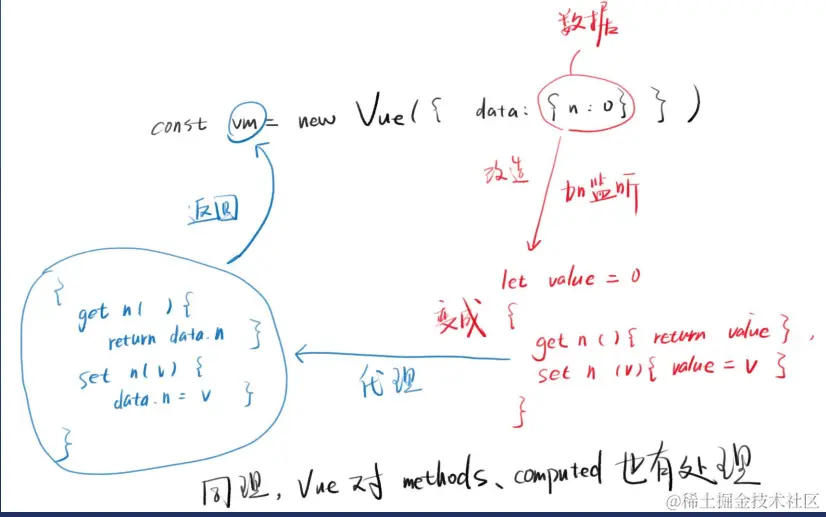 数据
const vm = new Vue({ data: {n:0} })
改造
加监听
返回
let value = 0
变成
{
get n(){ return value },
set n(v){ value = v }
}
代理
{
get n( ){
return data.n
}
set n(v) {
data.n = v
}
}
同理, Vue 对 methods、computed 也有处理
@稀土掘金技术社区